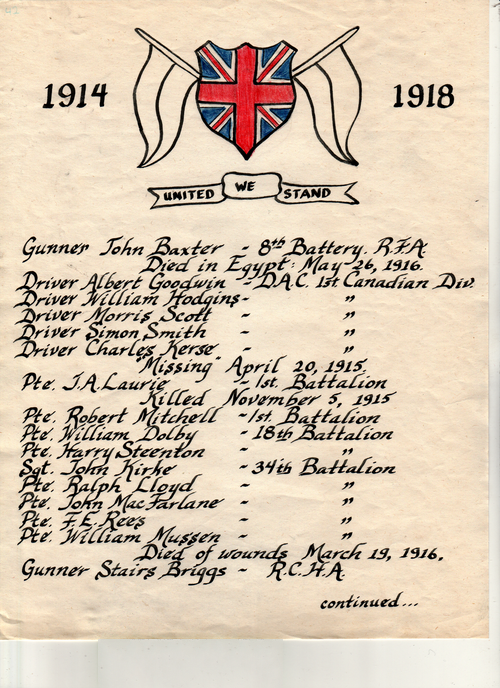 1914 1918
UNITED WE STAND
Gunner John Baxter - 8th Battery. R.F.A.
Died in Egypt: May-26, 1916.
Driver Albert Goodwin - D.A.C. 1st Canadian Div.
Driver William Hodgins - "
Driver Morris Scott - "
Driver Simon Smith - "
Driver Charles Kerse - "
"Missing" April 20, 1915.
Pte. J.A. Laurie - 1st. Battalion
Killed November 5, 1915
Pte. Robert Mitchell - 1st. Battalion
Pte. William Dolby - 18th Battalion
Pte. Harry Steenton - "
Sgt. John Kirke - 34th Battalion
Pte. Ralph Lloyd - "
Pte. John MacFarlane - "
Pte. F.E. Rees - "
Pte. William Mussen - "
Died of wounds March 19, 1916.
Gunner Stairs Briggs - R.C.H.A.
continued...